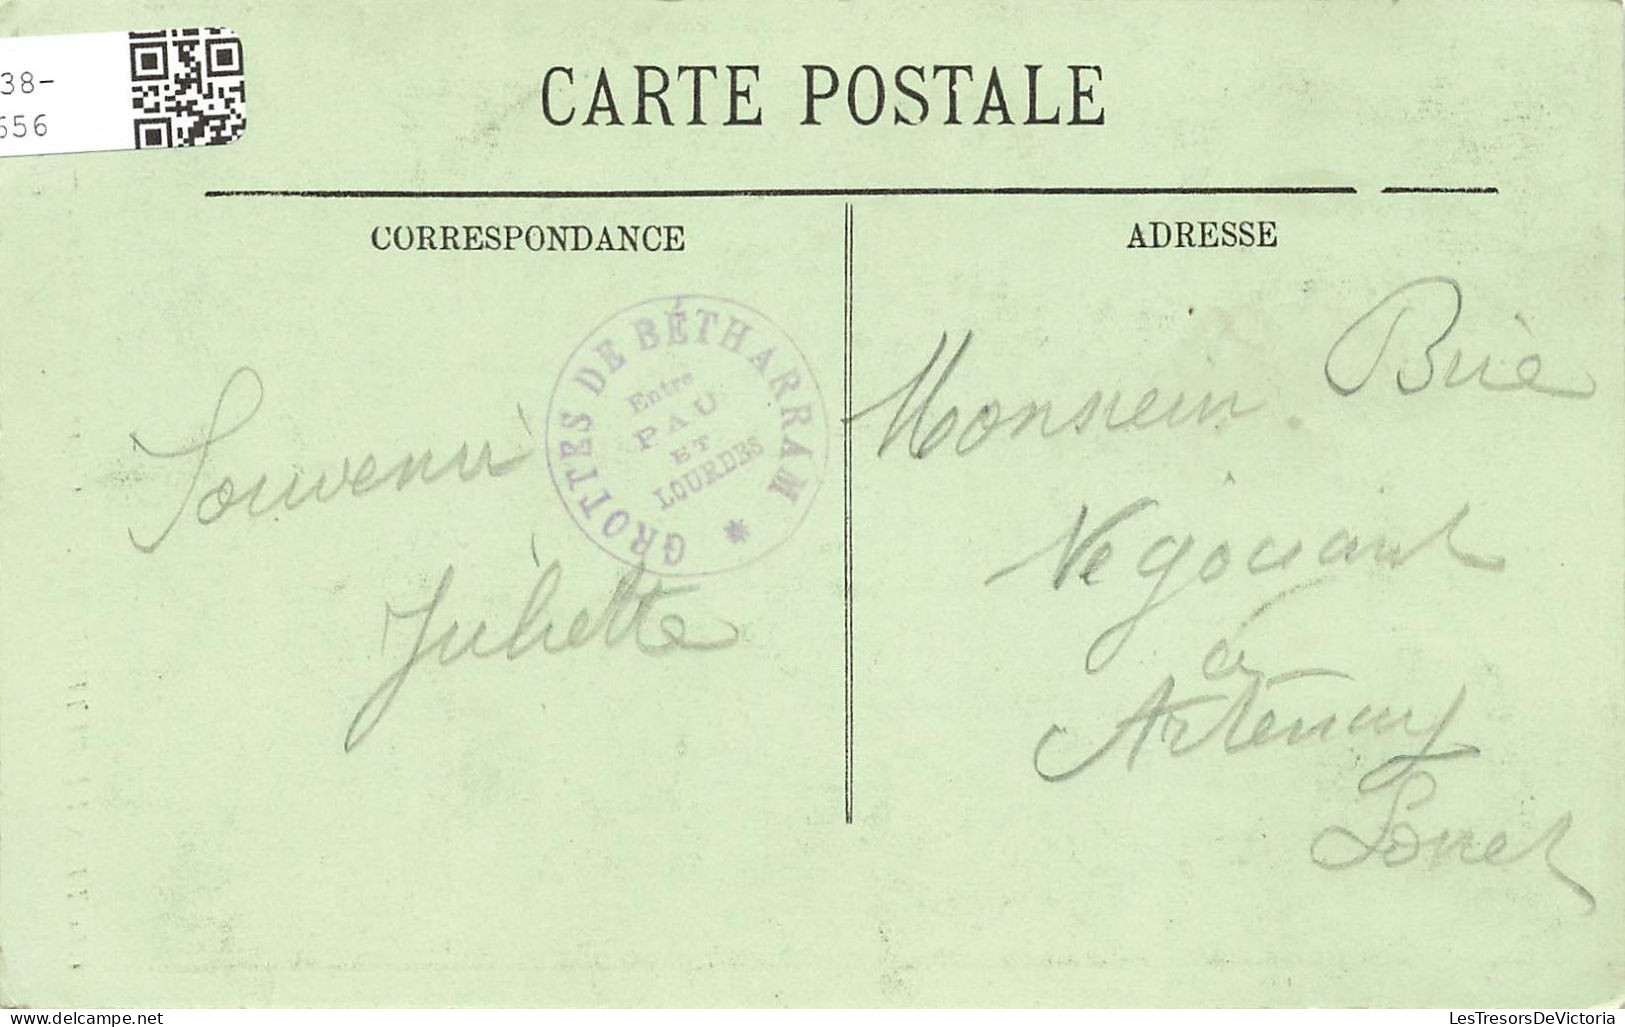 38-
656
CARTE POSTALE
CORRESPONDANCE
ADRESSE
GROTTES DE BÉTHARRAM
Entre
PAU
ET
LOURDES
Souvenir
Juliette
Monsieur Brié
Négociant
à
Artenay
Loiret
www.delcampe.net
LesTresorsDeVictoria